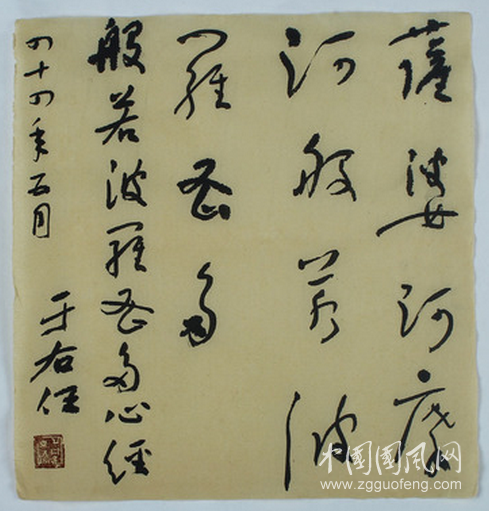 薩婆訶摩
訶般若波
羅蜜多
般若波羅蜜多心經
四十四年五月
于右任
中國國風网
www.zgguofeng.com